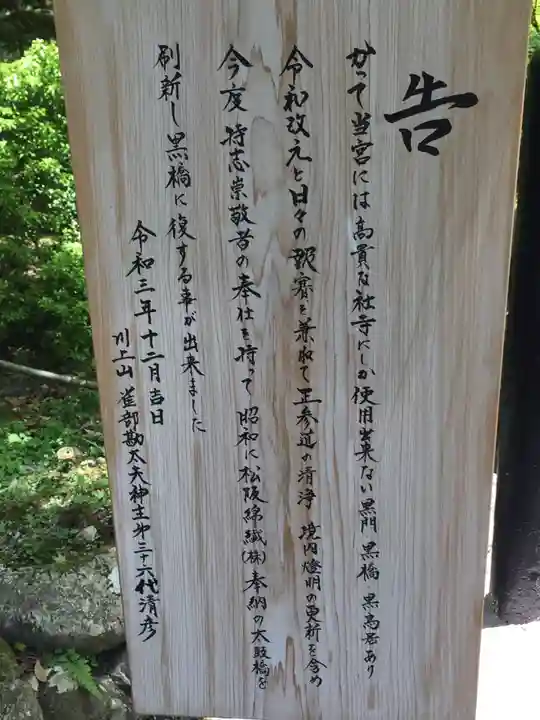 告
かつて当宮には高貴な社寺にしか使用出来ない黒門 黒橋 黒高居あり
令和改元と日々の報賽を兼ねて正参道の清浄 境内燈明の更新を含め
今度 特志崇敬者の奉仕を持って 昭和に松阪綿織(株)奉納の太鼓橋を
刷新し黒橋に復する事が出来ました
令和三年十二月吉日
川上山 雀部勘太夫神主第三十六代清彦